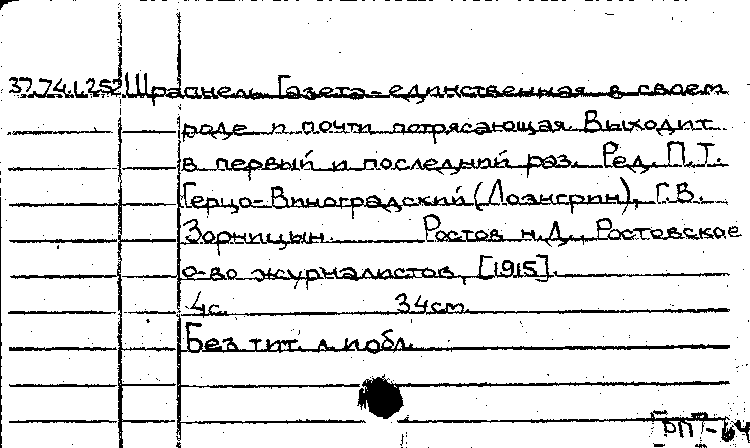 37.74.1.252 Шрапнель. Газета-единственная в своем
роде и почти потрясающая. Выходит
в первый и последний раз. Ред. П.Т.
Герцо-Виноградский (Лоэнгрин), Г.В.
Зорницын. Ростов н.Д., Ростовское
о-во журналистов, [1915].
4с. 34см.
Без тит. л. и обл.